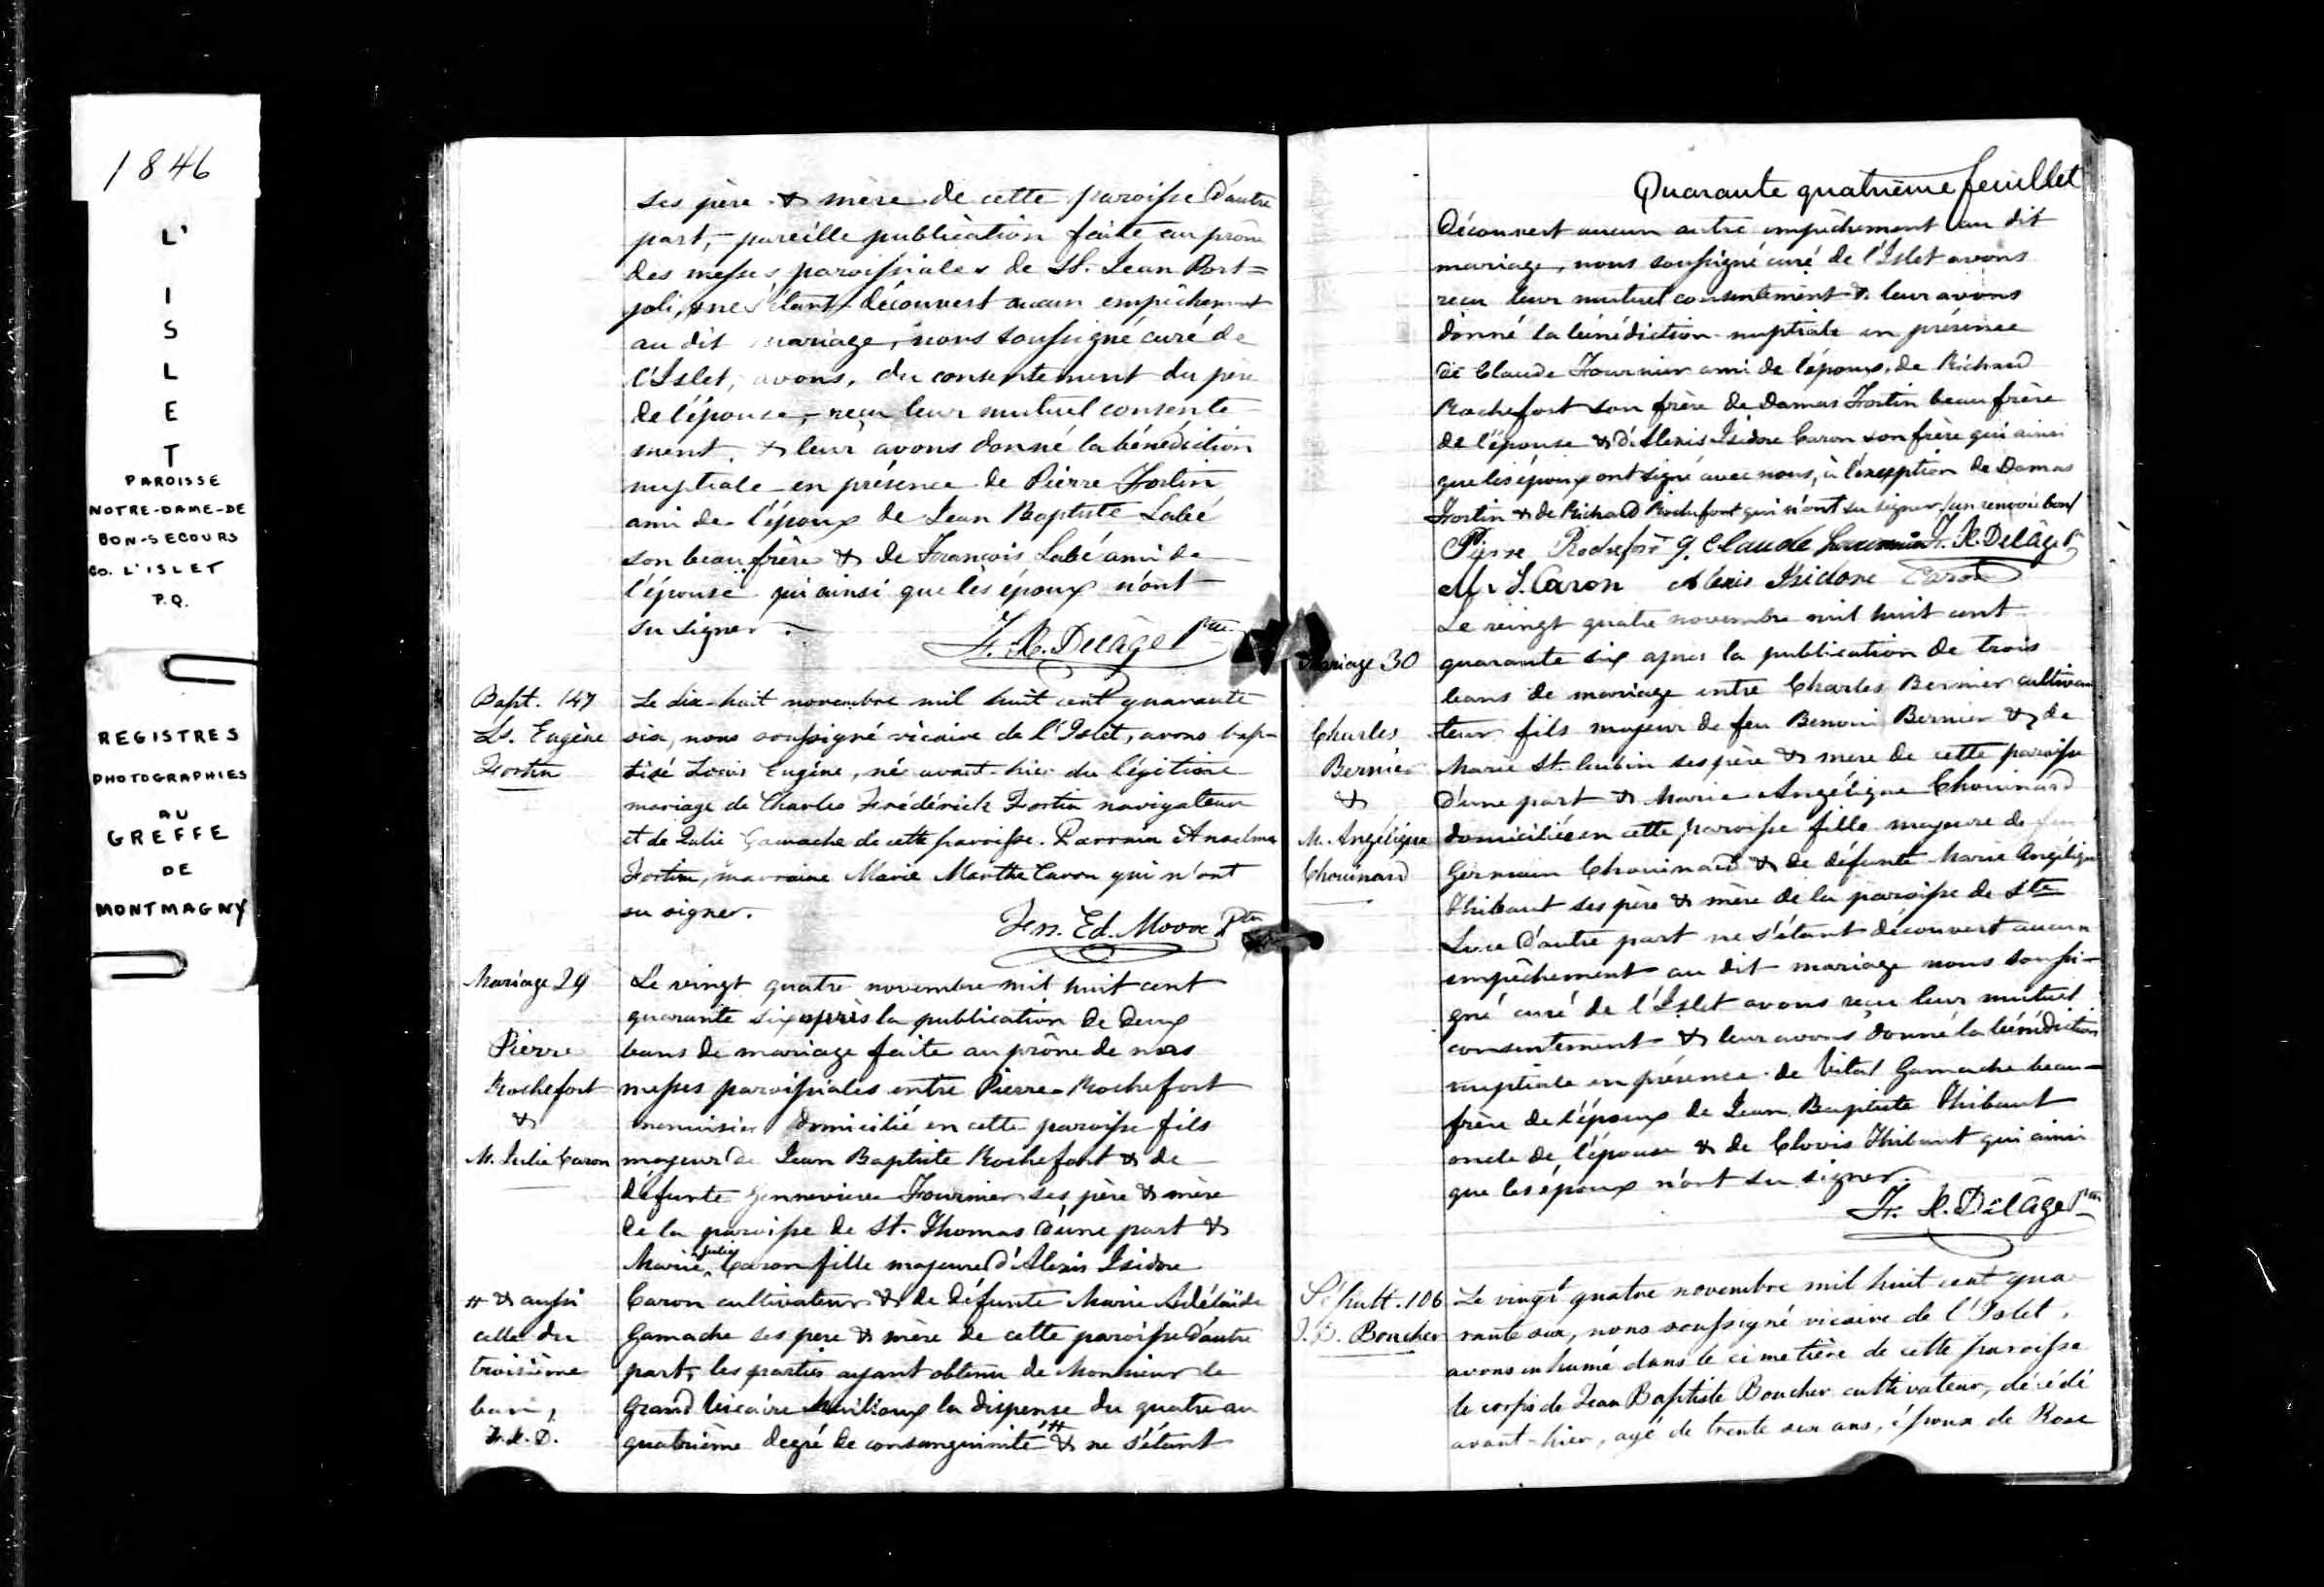 1846
L'
I
S
L
E
T
PAROISSE
NOTRE-DAME-DE
BON-SECOURS
CO. L'ISLET
P.Q.
REGISTRES
PHOTOGRAPHIES
AU
GREFFE
DE
MONTMAGNY
ses père & mère de cette paroisse d'autre
part, pareille publication faite au prône
des messes paroissiales de St. Jean Port=
joli, & ne s'étant découvert aucun empêchement
au dit mariage, nous soussigné curé de
l'Islet, avons, du consentement du père
de l'épouse, reçu leur mutuel consente
ment, & leur avons donné la bénédiction
nuptiale en présence de Pierre Fortin
ami de l'époux de Jean Baptiste Labé
son beau frère & de François Labé ami de
l'épouse qui ainsi que les époux n'ont
su signer.
F. X. Delâge Ptre
Bapt. 147
Ls. Eugène
Fortin
Le dix-huit novembre mil huit cent quarante
six, nous soussigné vicaire de l'Islet, avons bap-
tisé Louis Eugène, né avant-hier du légitime
mariage de Charles Frédérick Fortin navigateur
et de Julie Gamache de cette paroisse. Parrain Anselme
Fortin, marraine Marie Marthe Caron qui n'ont
su signer.
Frs. Ed. Moore Ptre
Mariage 29
Pierre
Rochefort
&
M. Julie Caron
Le vingt quatre novembre mil huit cent
quarante six après la publication de deux
bans de mariage faite au prône de nos
messes paroissiales entre Pierre Rochefort
menuisier domicilié en cette paroisse fils
majeur de Jean Baptiste Rochefort & de
défunte Gennevieve Fournier ses père & mère
de la paroisse de St. Thomas d'une part &
Marie Julie Caron fille majeure d'Alexis Isidore
Caron cultivateur & de défunte Marie Adélaïde
Gamache ses pere & mère de cette paroisse d'autre
part, les parties ayant obtenu de Monsieur le
Grand Vicaire la dispense du quatre au
quatrième degré de consanguinité # & ne s'étant
# & aussi
celle du
troisième
ban,
F.X.D.
Quarante quatrième feuillet
Découvert aucun autre empêchement au dit
mariage, nous soussigné curé de l'Islet avons
reçu leur mutuel consentement & leur avons
donné la bénédiction nuptiale en présence
de Claude Fournier ami de l'époux, de Richard
Rochefort son frère de Damas Fortin beau frère
de l'épouse & d'Alexis Isidore Caron son frère qui ainsi
que les époux ont signé avec nous, à l'exception de Damas
Fortin & de Richard Rochefort qui n'ont su signer /un renvoi bon/
Pierre Rochefort J. Claude Fournier F. X. Delâge Ptre
M. J. Caron Alexis Isidore Caron
Mariage 30
Charles
Bernier
&
M. Angélique
Chouinard
Le vingt quatre novembre mil huit cent
quarante six apres la publication de trois
bans de mariage entre Charles Bernier cultiva
teur fils majeur de feu Benoni Bernier & de
Marie St. Aubin ses père & mere de cette paroisse
d'une part & Marie Angélique Chouinard
domiciliée en cette paroisse fille majeure de feu
Germain Chouinard & de défunte Marie Angélique
Thibaut ses père & mère de la paroisse de Ste
Luce d'autre part ne s'étant découvert aucun
empêchement au dit mariage nous soussi-
gné curé de l'Islet avons reçu leur mutuel
consentement & leur avons donné la bénédiction
nuptiale en présence de Vital Gamache beau-
frère de l'époux de Jean Baptiste Thibaut
oncle de l'épouse & de Clovis Thibaut qui ainsi
que les époux n'ont su signer.
F. X. Delâge Ptre
Sépult. 106
J. B. Boucher
Le vingt quatre novembre mil huit cent qua
rante six, nous soussigné vicaire de l'Islet,
avons inhumé dans le cimetière de cette paroisse
le corps de Jean Baptiste Boucher cultivateur, décédé
avant-hier, agé de trente six ans, époux de Rose